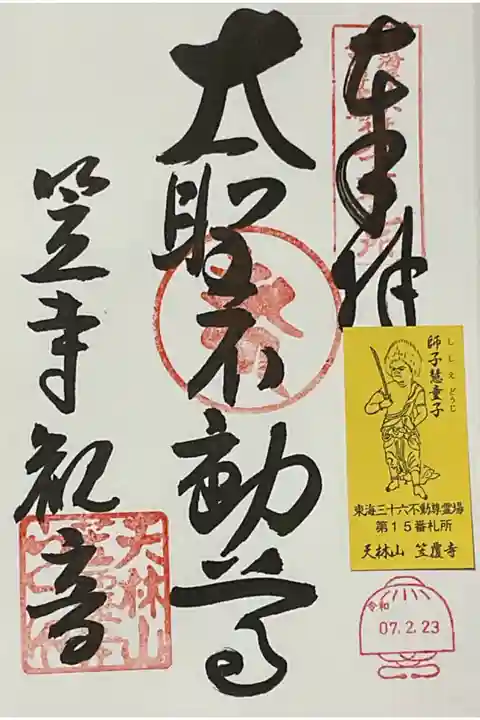 奉拝
大聖不動尊
笠寺観音
師子慧童子
ししえどうじ
東海三十六不動尊霊場
第15番札所
天林山 笠覆寺
令和
07.2.23
天林山